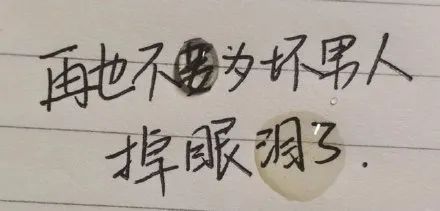 再也不为坏男人
掉眼泪了.